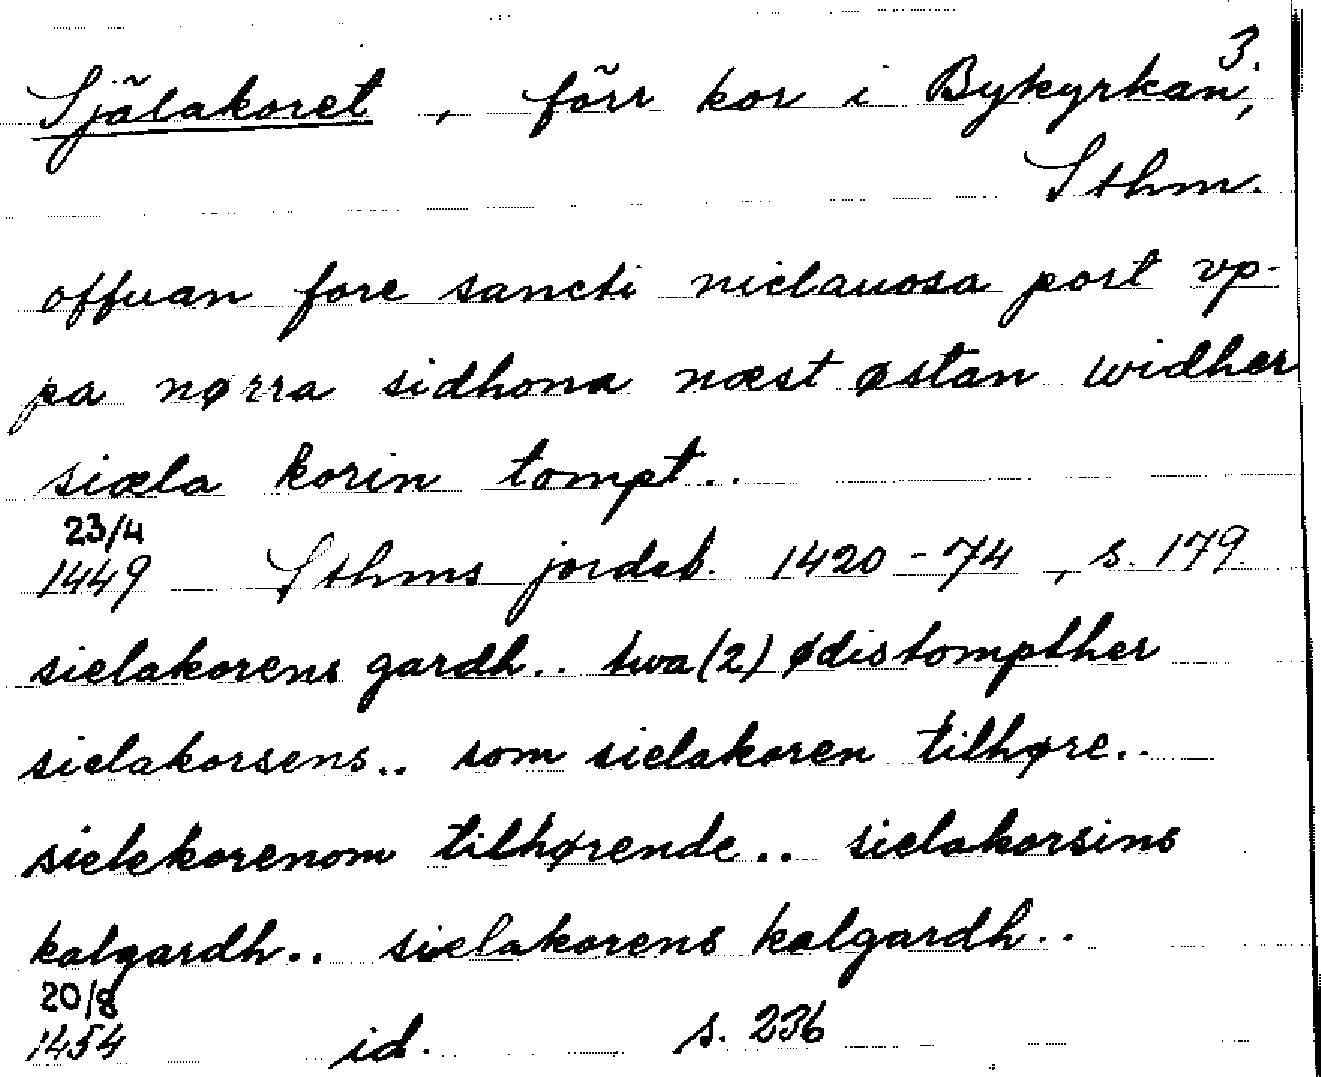 3.
Själakoret, förr kor i Bykyrkan,
Sthm.
offuan fore sancti niclauosa port vp-
pa nørra sidhona næst østan widher
siæla korin tompt..
23/4
1449 Sthms jordeb. 1420-74, s. 179.
sielakorens gardh.. twa (2) ødistompther
sielakorsens.. som sielakoren tilhøre..
sielekorenom tilhørende.. sielakorsins
kalgardh.. siælakorens kalgardh..
20/8
1454 id. s. 236